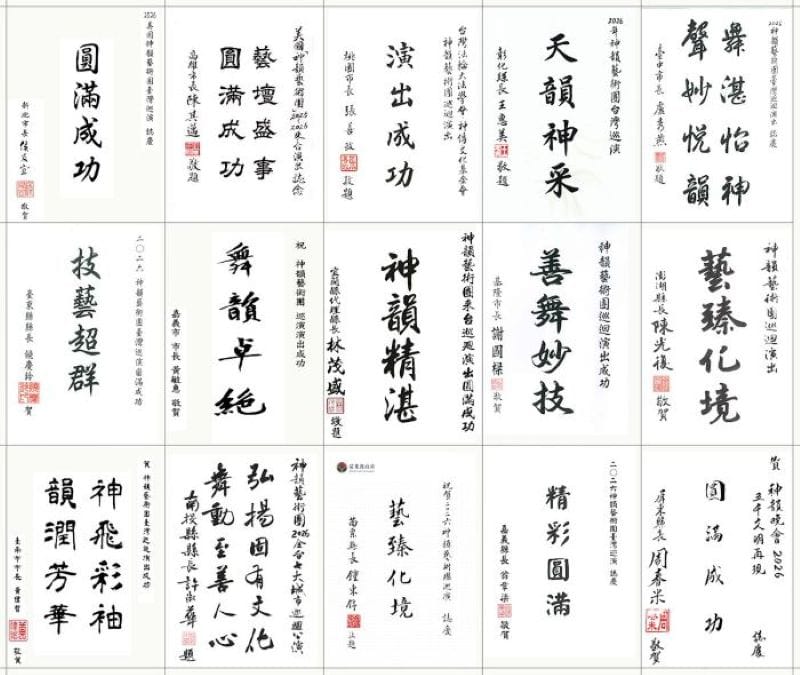 2026美國神韻藝術團臺灣巡演 誌慶
圓滿成功
新北市長 侯友宜 敬賀
美國「神韻藝術團」2025 2026來台演出誌念
藝壇盛事
圓滿成功
高雄市長 陳其邁 敬題
台灣法輪大法學會 神傳文化基金會
神韻藝術團巡迴演出
演出成功
桃園市長 張善政 敬題
2026年神韻藝術團台灣巡演
天韻神采
彰化縣長 王惠美 敬題
2026神韻藝術團臺灣巡演 誌慶
舞湛怡神
聲妙悅韻
臺中市長 盧秀燕 敬題
二〇二六 神韻藝術團臺灣巡演圓滿成功
技藝超群
臺東縣縣長 饒慶鈴 賀
祝 神韻藝術團 巡演演出成功
舞韻卓絕
嘉義市 市長 黃敏惠 敬賀
神韻藝術團來台巡迴演出圓滿成功
神韻精湛
宜蘭縣代理縣長 林茂盛 敬題
神韻藝術團巡迴演出成功
善舞妙技
基隆市長 謝國樑 敬賀
神韻藝術團巡迴演出
藝臻化境
澎湖縣長 陳光復 敬賀
賀 神韻藝術團臺灣巡迴演出成功
神飛彩袖
韻潤芳華
臺南市市長 黃偉哲 敬賀
神韻藝術團2026全台七大城市巡迴公演
弘揚固有文化
舞動至善人心
南投縣縣長 許淑華 題
苗栗縣政府
祝賀二〇二六神韻藝術團巡演 誌慶
藝臻化境
苗栗縣長 鍾東錦 敬題
二〇二六神韻藝術團臺灣巡演 誌慶
精彩圓滿
嘉義縣長 翁章梁 敬賀
賀 神韻晚會 2026
五千文明再現
誌慶
圓滿成功
屏東縣長 周春米 敬賀